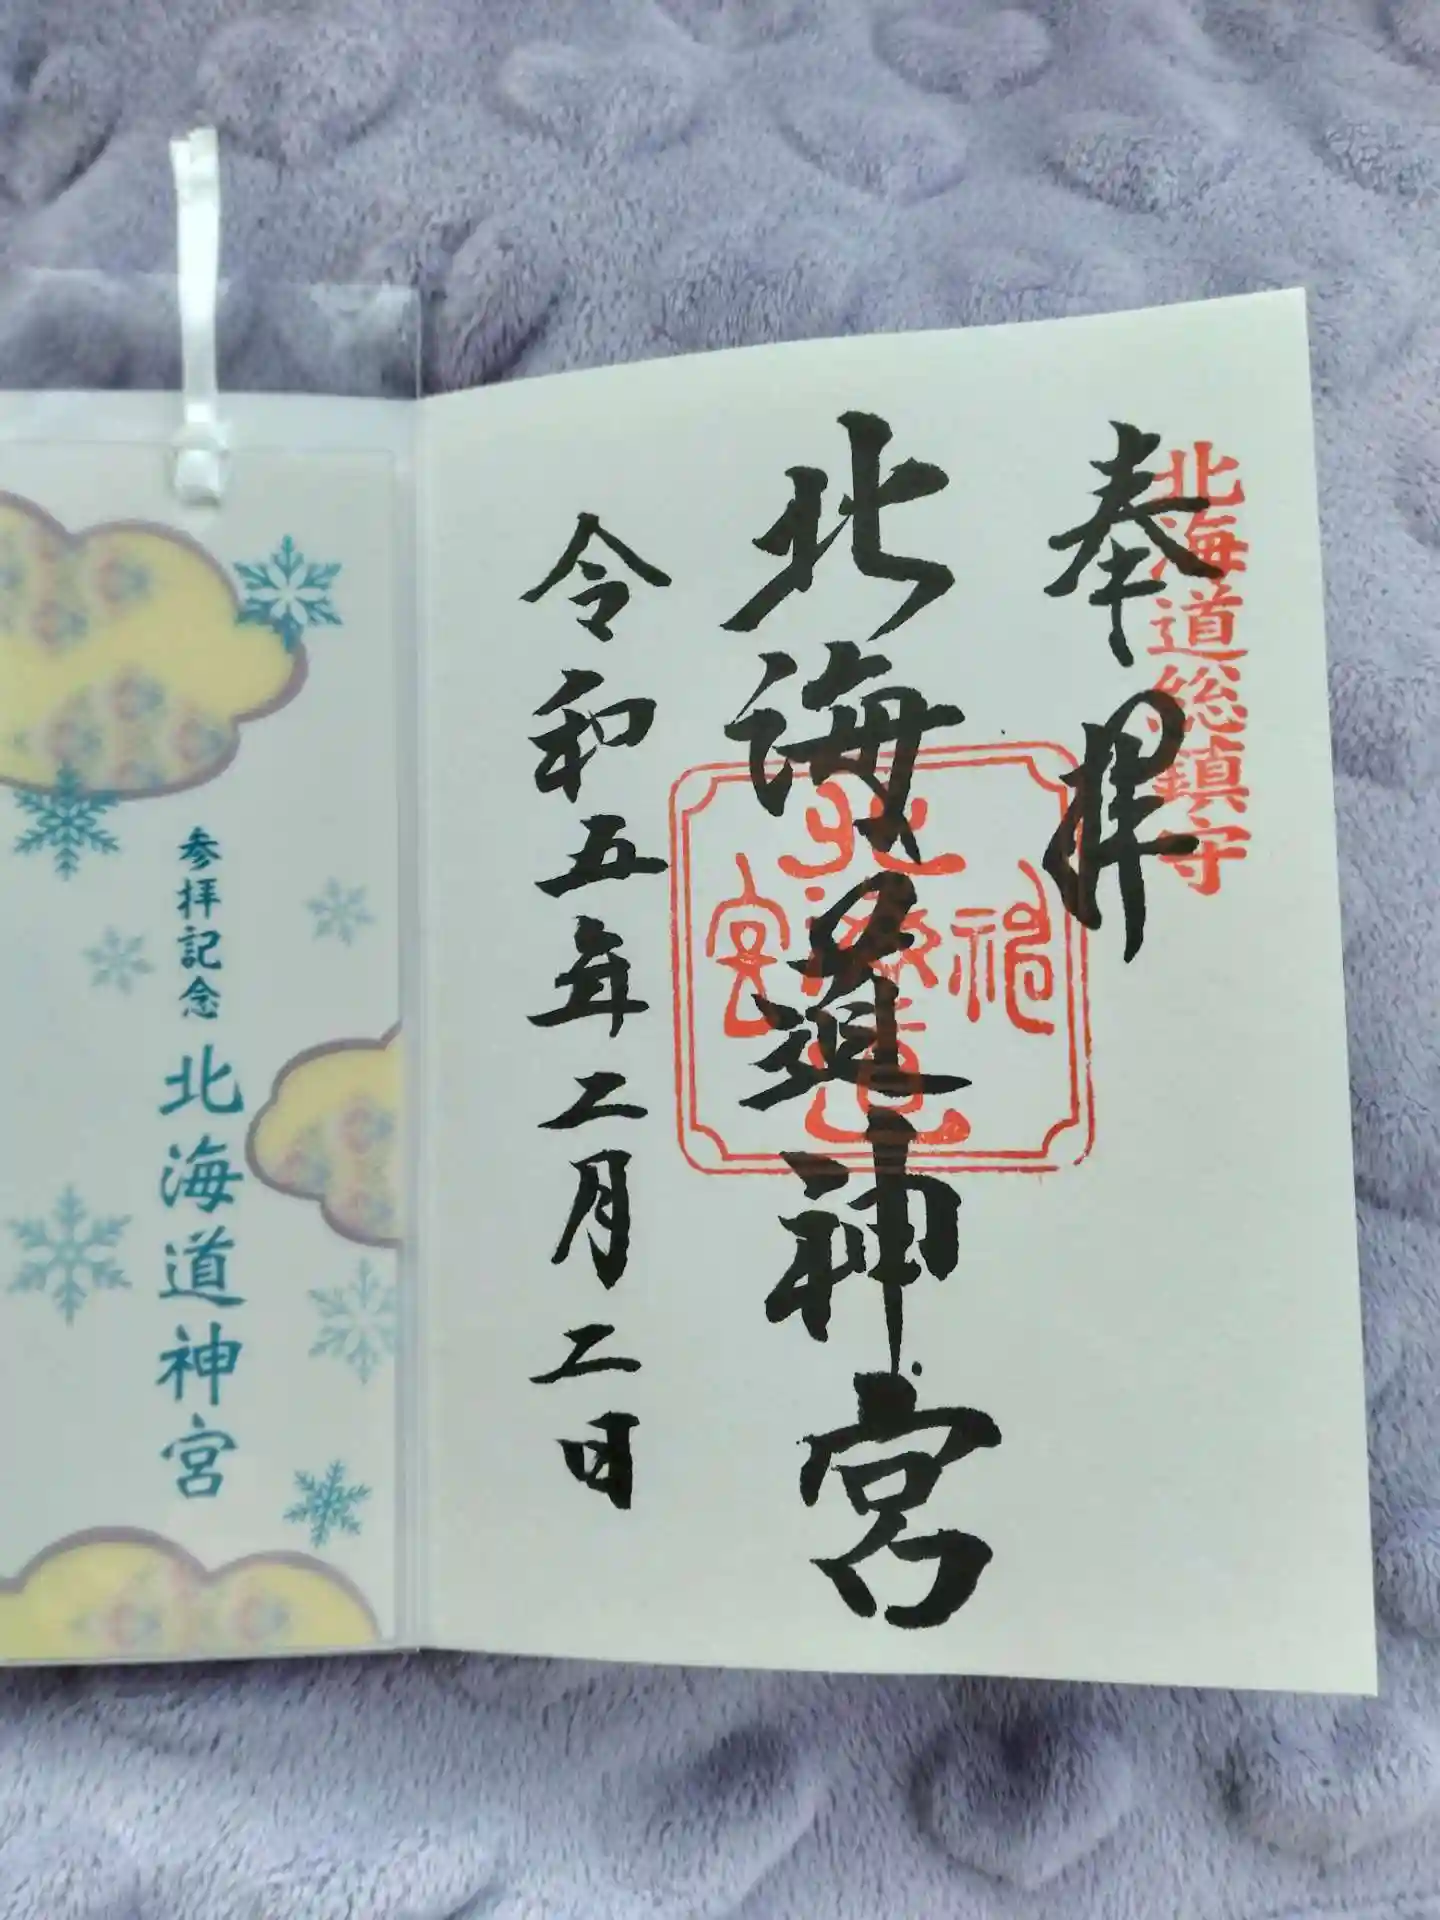 北海道総鎮守
奉拝
北海道神宮
令和五年二月二日
参拝記念 北海道神宮